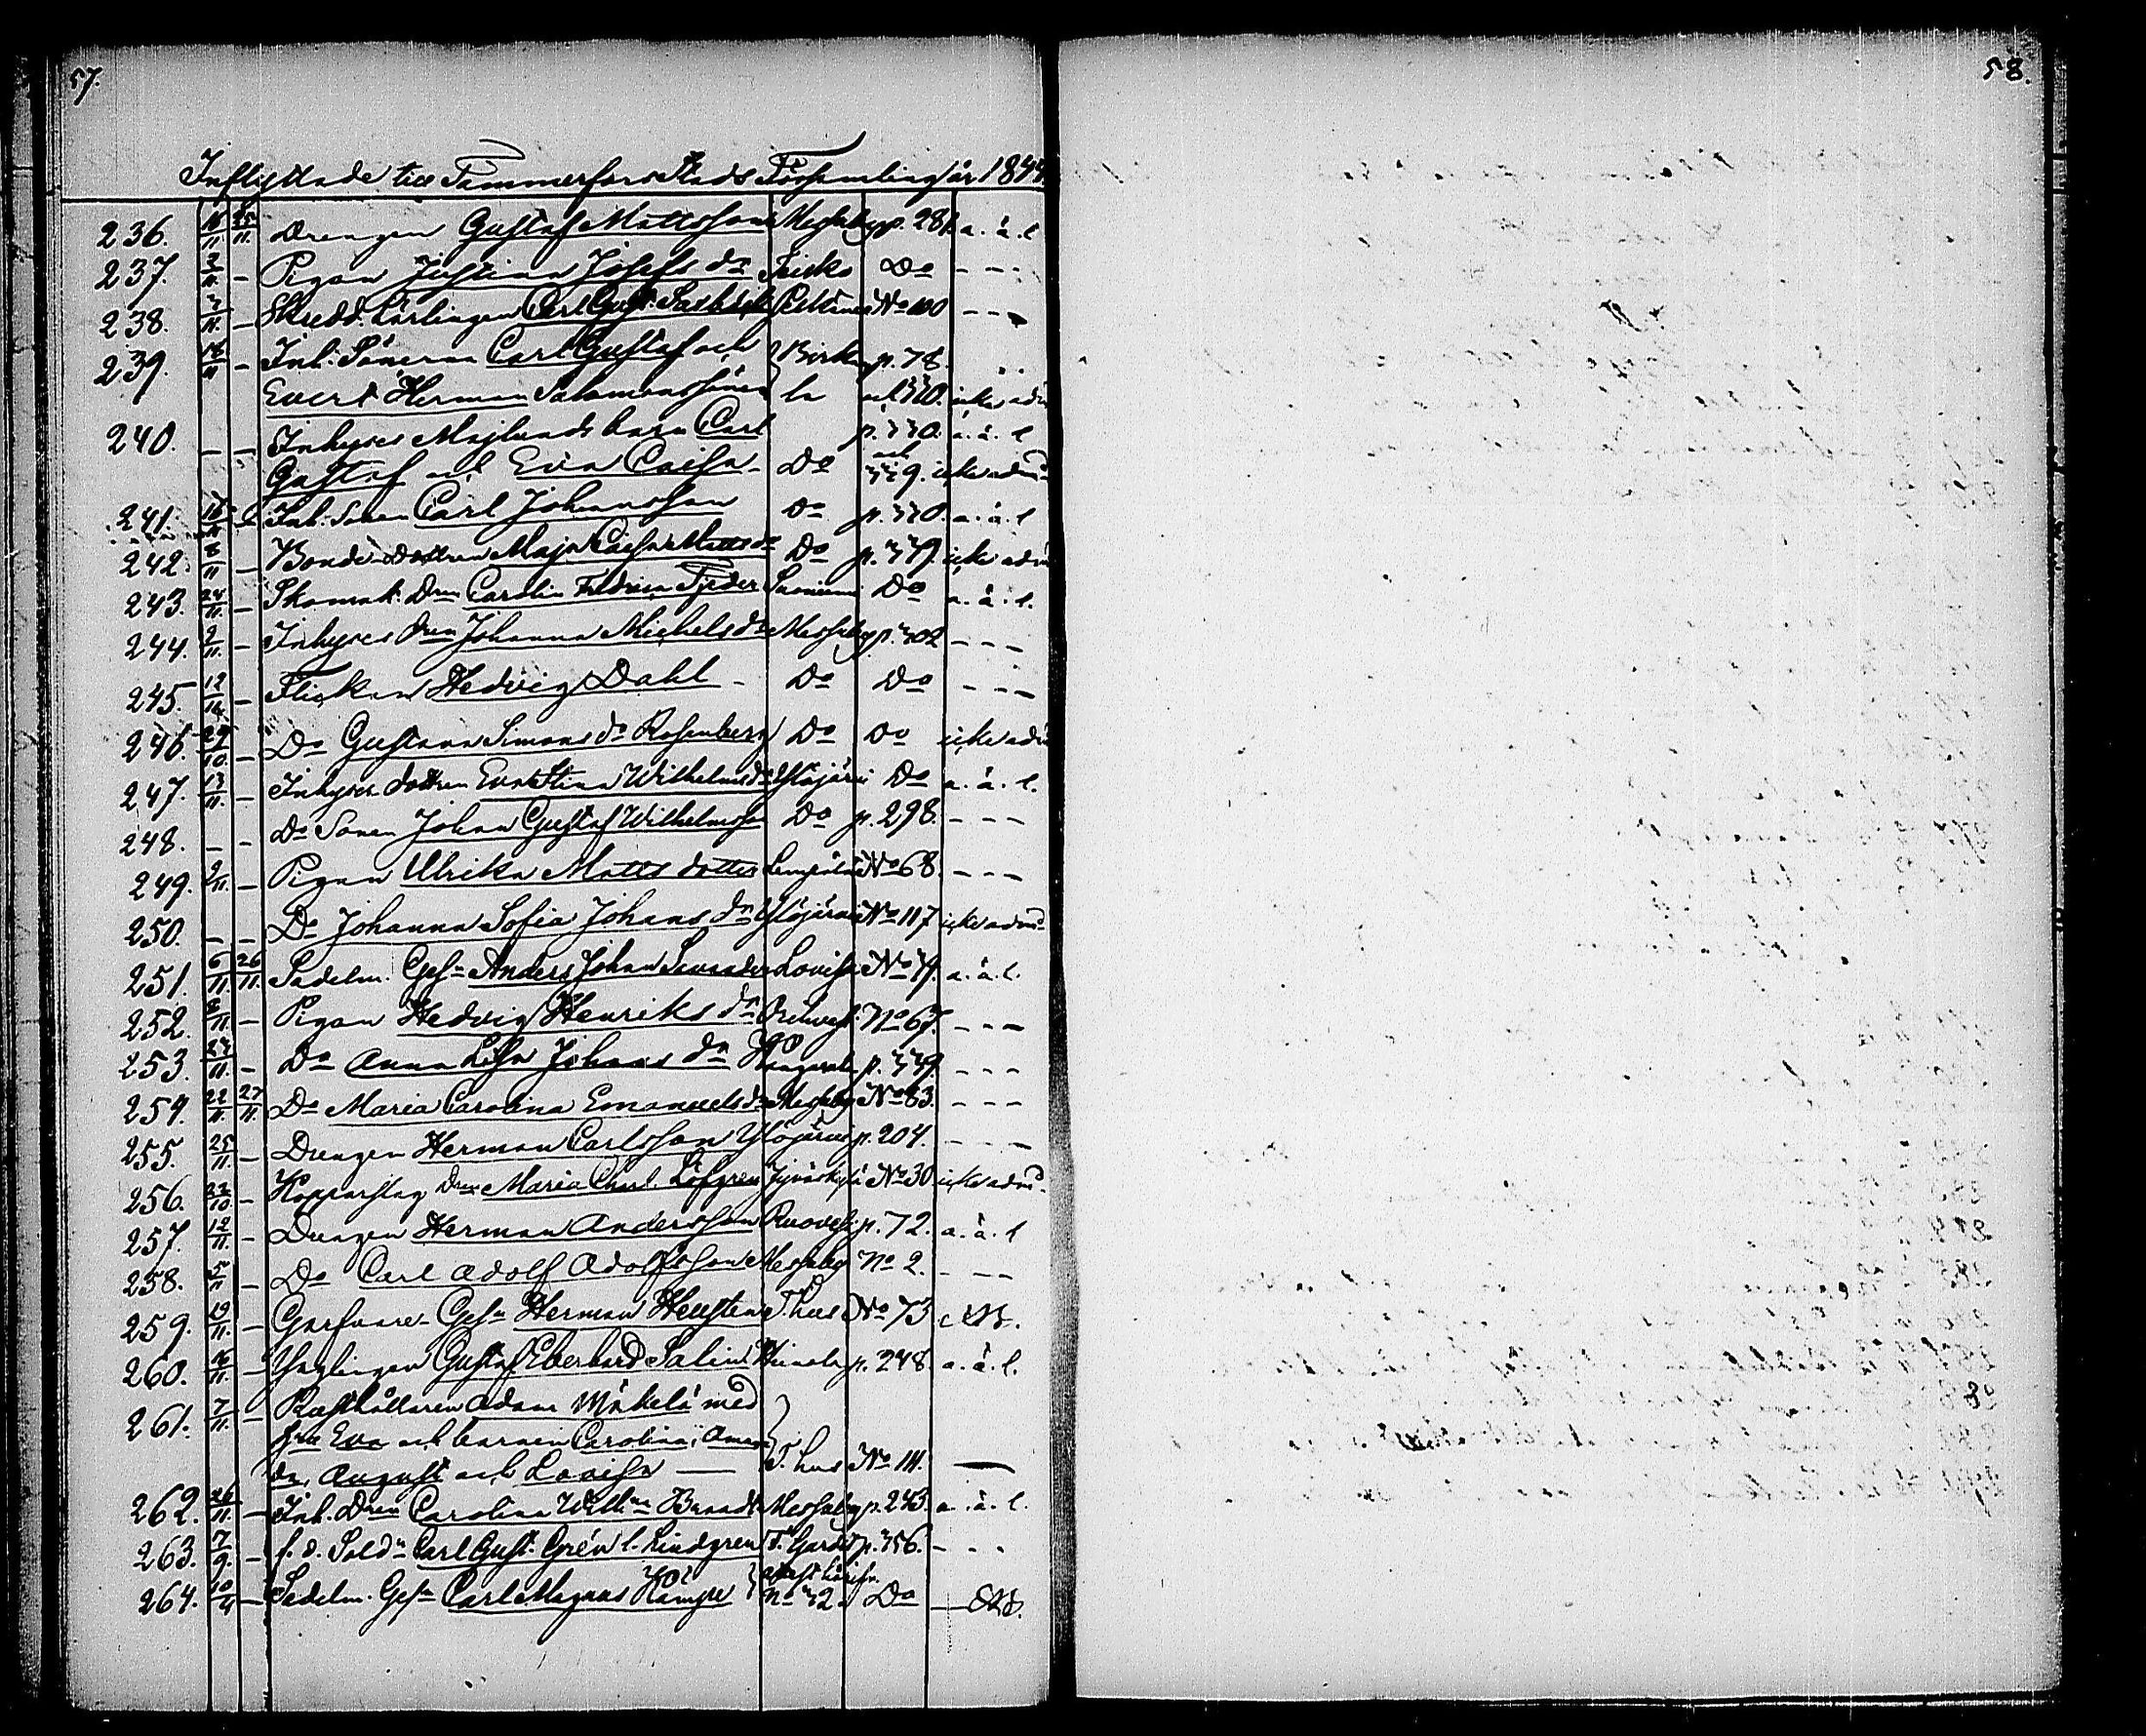 57.
58.
Inflyttade till Tammerfors Stads Församling år 1844
236. 16/11 25/11 Drengen Gustaf Mattsson Messuby p. 281. a. ä. l
237. 2/11 — Pigan Justina Josefs dr Do - - -
238. 3/11 — Skredd. Lärlingen Carl Gust. No 100 - - -
239. 18/11 — Inh. Sönerna Carl Gustaf och Birka p. 78.
Evert Herman Salomonssöner la och 330. icke adm
240. — — Inhyses Majlunds barn Carl p. 330. a. ä. l
Gustaf och Eva Caisa - Do och 339. icke adm
241. 16/11 Inh. Sonen Carl Johansson Do p. 330. a. ä. l
242. 8/11 — Bonde Dottren Maja Caisa Matts dr Do p. 339. icke adm
243. 24/11 — Skomak. Dren Carolin Fredrica Tjeder Do a. ä. l.
244. 2/11 — Inhyses dren Johanna Michels dr Messuby p. 302 - - -
245. 12/ — Flickan Hedvig Dahl - Do Do - - -
246. 29/10 — Do Gustava Simons dr Rosenberg Do Do icke adm
247. 13/11 — Inhyses dottren Eva Stina Wilhelms dr Ylöjärvi Do a. ä. l.
248. — — Do Sonen Johan Gustaf Wilhelmsson Do p. 298. - - -
249. 2/11 — Pigan Ulrika Matts dotter Lempälä No 68. - - -
250. — — Do Johanna Sofia Johans dr Ylöjärvi No 117 icke adm
251. 6/11 26/11 Sadelm. Gesn Anders Johan Lovisa No 74. a. ä. l.
252. 8/11 — Pigan Hedvig Henriks dr No 67. - - -
253. 23/11 — Do Anna Lisa Johans dr Kangasala p. 339 - - -
254. 22/11 27/11 Do Maria Carolina Emanuels dr Messuby No 83. - - -
255. 25/11 — Drengen Herman Carlsson Ylöjärvi p. 204. - - -
256. 22/10 — Kopparslag Dren Maria Charl. Löfgren Jyväskylä No 30 icke adm.
257. 12/11 — Drengen Herman Andersson Ruovesi p. 72. a. ä. l
258. 5/11 — Do Carl Adolf Adolfsson Messuby No 2. - - -
259. 19/11 — Garfvare Gesn Herman Hellsten T. hus No 73
260. 16/11 — Ynglingen Gustaf Eberhard Salin p. 248 a. ä. l.
261. 7/11 — Rusthållaren Adam Mäkelä med
hu Eva och barnen Carolina, Aman
da, August och Lovisa — T. hus No 111. —
262. 26/11 — Inh. Dren Carolina Wilhna Brandt Messuby p. 243. a. ä. l.
263. 7/9 — f. d. Soldn Carl Gust. Grén l. Lindgren F. Gardet p. 356. - - -
264. 10/4 — Sadelm. Gesn Carl Magnus Kämpe No 32 Do —